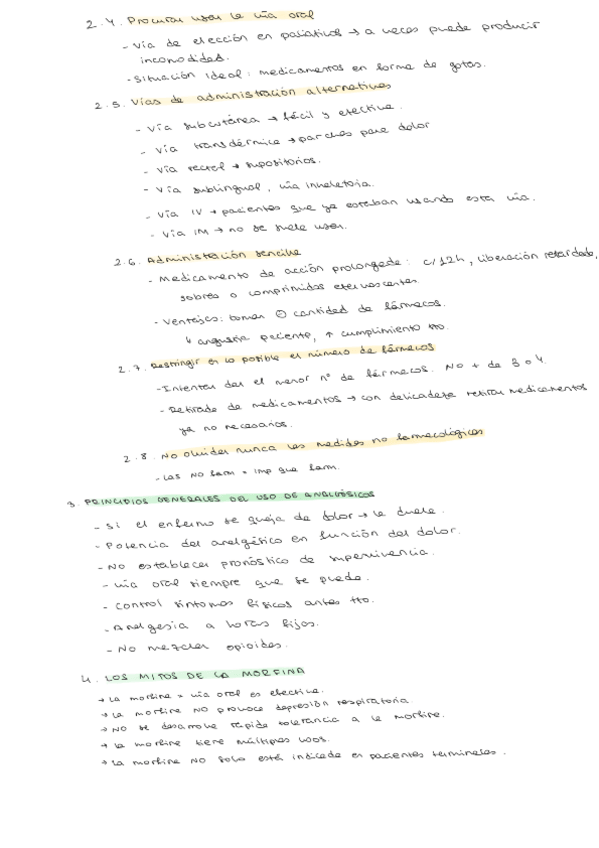 2.4. Procurar usar la vía oral
- Vía de elección en paliativos → a veces puede producir
incomodidad.
- Situación ideal: medicamentos en forma de gotas.
2.5. Vías de administración alternativas
- Vía subcutánea → fácil y efectiva.
- Vía transdérmica → parches para dolor
- Vía rectal → supositorios.
- Vía sublingual, vía inhalatoria.
- Vía IV → pacientes que ya estaban usando esta vía.
- Vía IM → no se suele usar.
2.6. Administración sencilla
- Medicamento de acción prolongada: c/12h, liberación retardada,
sobres o comprimidos efervescentes.
- Ventajas: toman ⊖ cantidad de fármacos.
↓ angustia paciente, ↑ cumplimiento tto.
2.7. Restringir en lo posible el número de fármacos
- Intentar dar el menor nº de fármacos. No + de 3 o 4.
- Retirada de medicamentos → con delicadeza retirar medicamentos
ya no necesarios.
2.8. No olvidar nunca las medidas no farmacológicas
- Las NO farm = imp que farm.
3. PRINCIPIOS GENERALES DEL USO DE ANALGÉSICOS
- Si el enfermo se queja de dolor → le duele.
- Potencia del analgésico en función del dolor.
- No establecer pronóstico de supervivencia.
- Vía oral siempre que se pueda.
- Control síntomas físicos antes tto.
- Analgesia a horas fijas.
- No mezclar opioides.
4. LOS MITOS DE LA MORFINA
→ La morfina x vía oral es efectiva.
→ La morfina NO provoca depresión respiratoria.
→ NO se desarrolla rápida tolerancia a la morfina.
→ La morfina tiene múltiples usos.
→ La morfina NO solo está indicada en pacientes terminales.